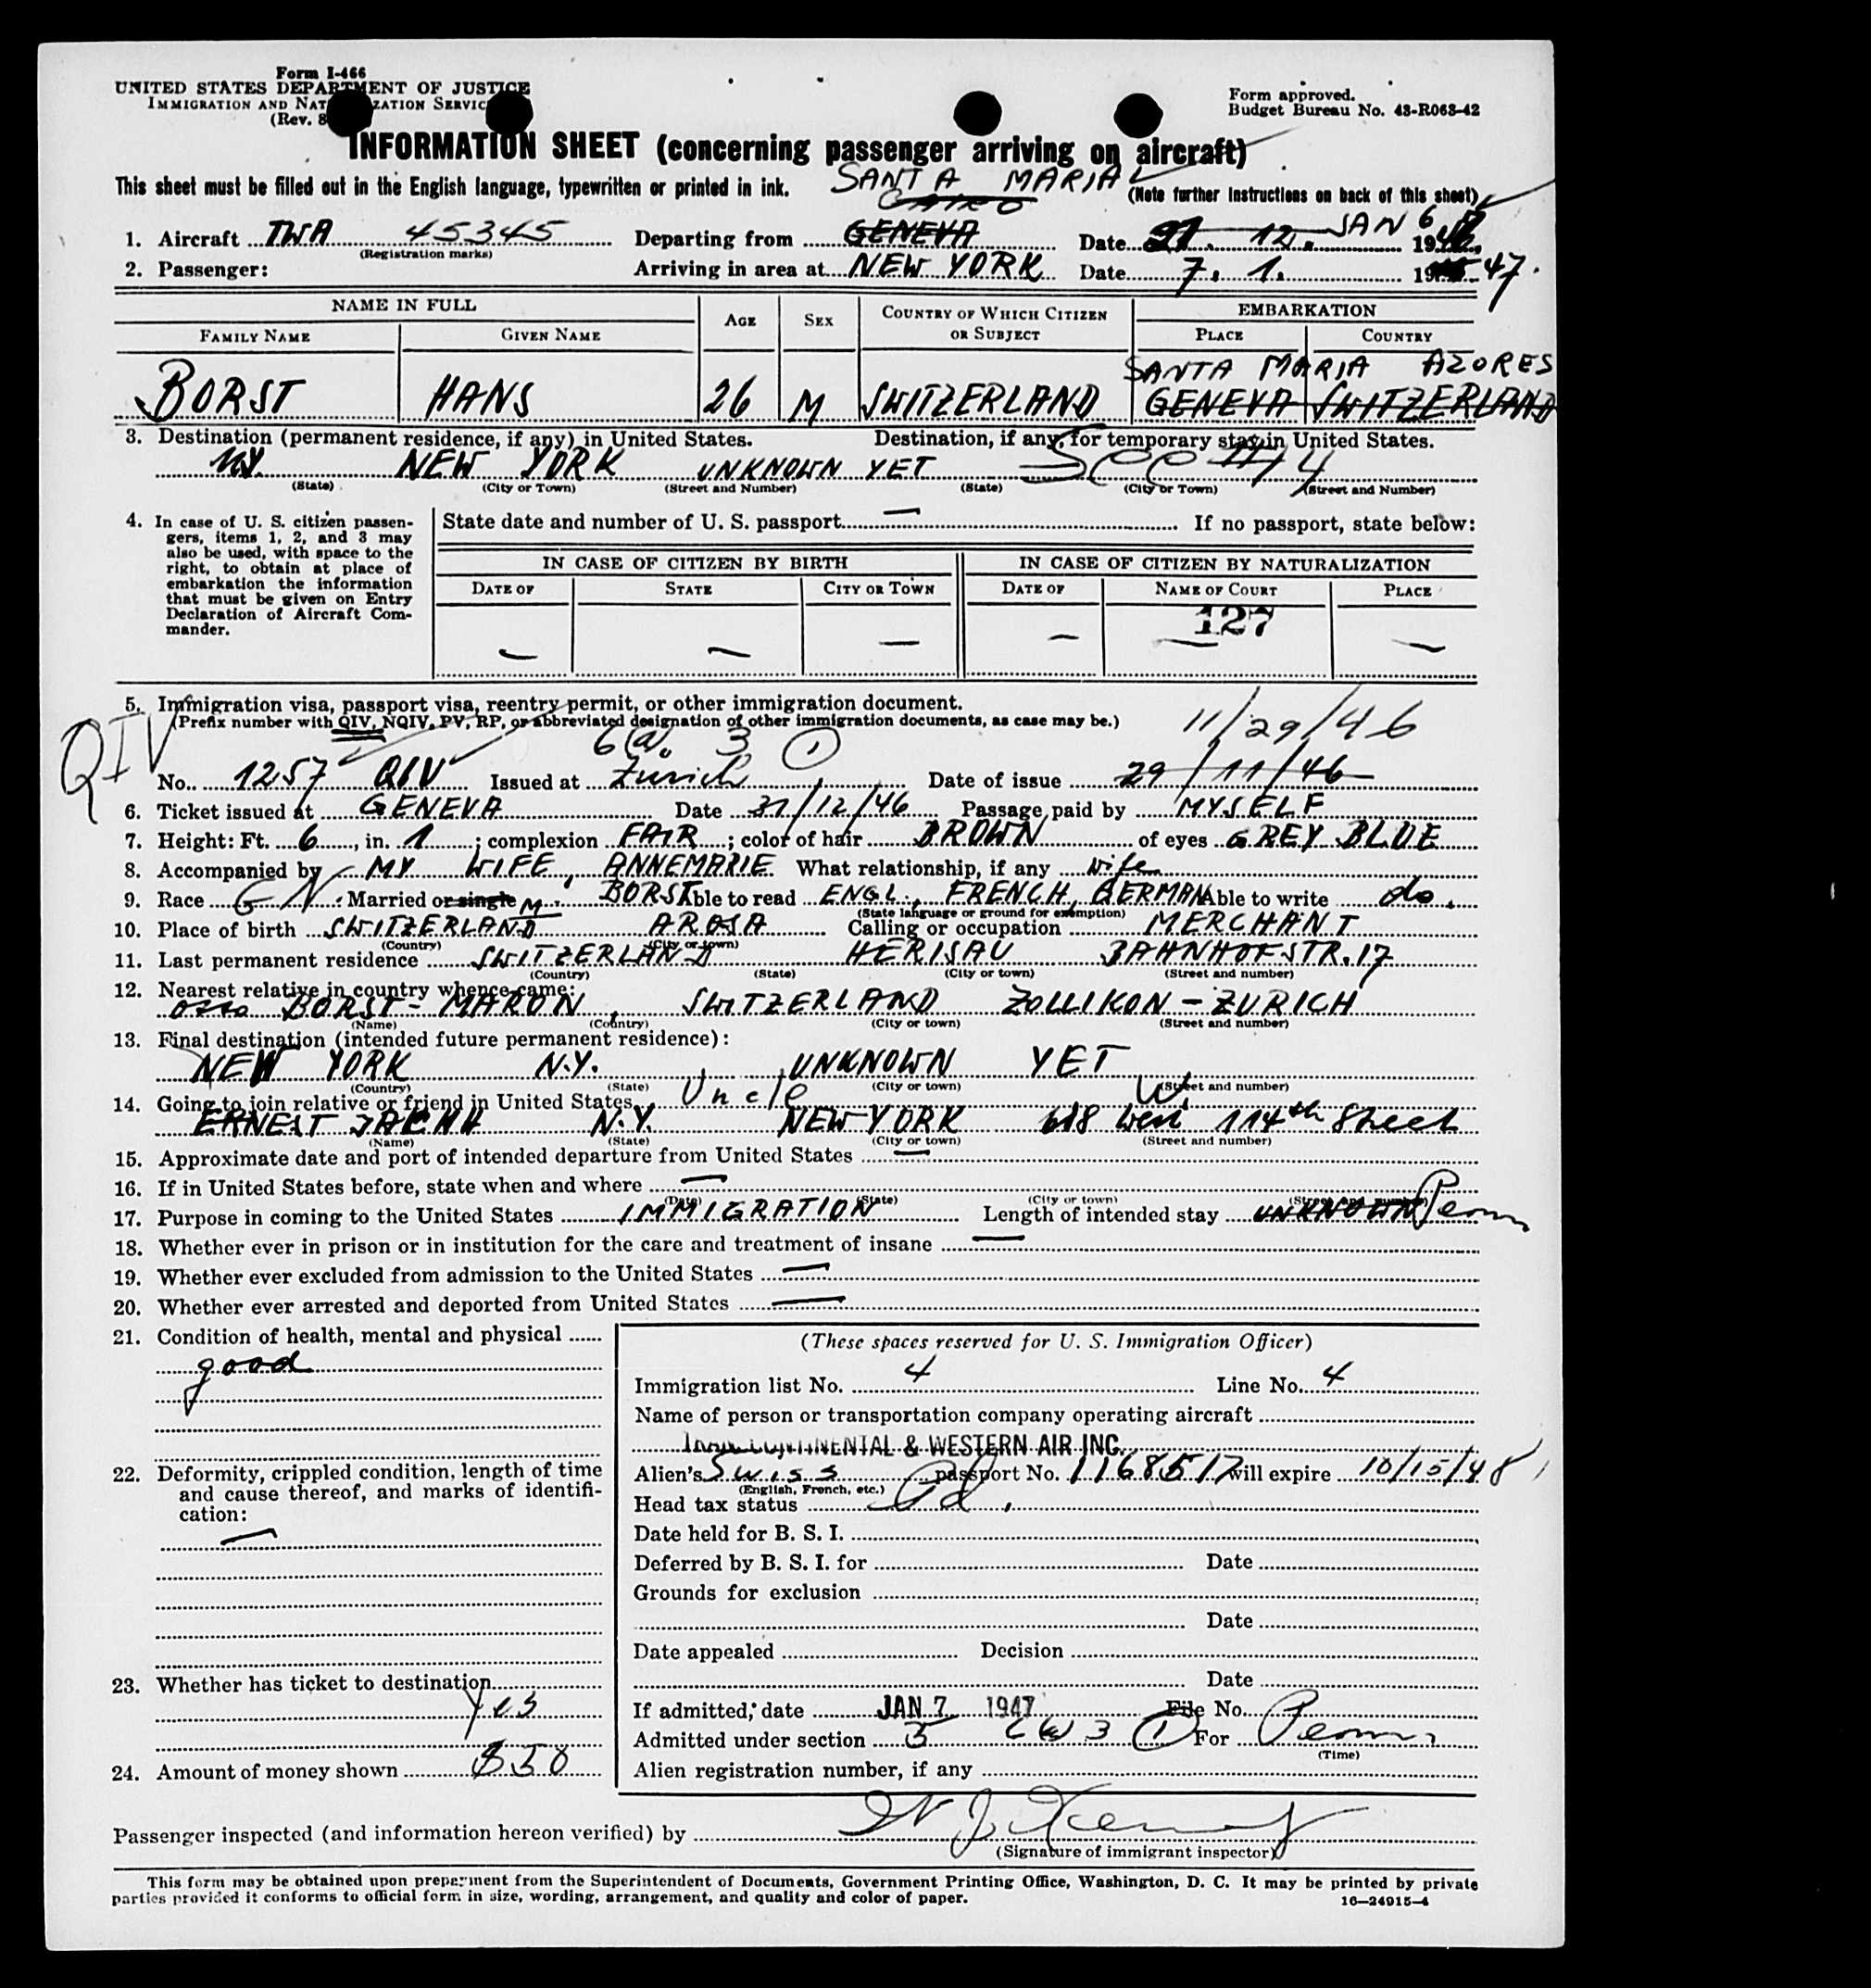 Form I-466
UNITED STATES DEPARTMENT OF JUSTICE
IMMIGRATION AND NAT ZATION SERVIC
(Rev. 8
Form approved.
Budget Bureau No. 43-R063-42
INFORMATION SHEET (concerning passenger arriving on aircraft)
This sheet must be filled out in the English language, typewritten or printed in ink. SANTA MARIA (Note further instructions on back of this sheet)
CAIRO
1. Aircraft TWA 45345 Departing from GENEVA Date 12. JAN 6 19
(Registration marks)
2. Passenger: Arriving in area at NEW YORK Date 7. 1. 19 47.
NAME IN FULL AGE SEX COUNTRY OF WHICH CITIZEN OR SUBJECT EMBARKATION
FAMILY NAME GIVEN NAME PLACE COUNTRY
SANTA MARIA AZORES
BORST HANS 26 M SWITZERLAND GENEVA SWITZERLAND
3. Destination (permanent residence, if any) in United States. Destination, if any, for temporary stay in United States.
N.Y. NEW YORK UNKNOWN YET See #14
(State) (City or Town) (Street and Number) (State) (City or Town) (Street and Number)
4. In case of U. S. citizen passen-
gers, items 1, 2, and 3 may
also be used, with space to the
right, to obtain at place of
embarkation the information
that must be given on Entry
Declaration of Aircraft Com-
mander.
State date and number of U. S. passport — If no passport, state below:
IN CASE OF CITIZEN BY BIRTH IN CASE OF CITIZEN BY NATURALIZATION
DATE OF STATE CITY OR TOWN DATE OF NAME OF COURT PLACE
127
— — — — — —
5. Immigration visa, passport visa, reentry permit, or other immigration document.
(Prefix number with QIV, NQIV, PV, RP, or abbreviated designation of other immigration documents, as case may be.) 11/29/46
QIV 6(a) 3 1
No. 1257 QIV Issued at Zürich Date of issue 29/11/46
6. Ticket issued at GENEVA Date 31/12/46 Passage paid by MYSELF
7. Height: Ft. 6, in. 1; complexion FAIR; color of hair BROWN of eyes GREY BLUE
8. Accompanied by MY WIFE, ANNEMARIE What relationship, if any Wife
9. Race G N. Married or single M. BORST Able to read ENGL., FRENCH, GERMAN Able to write do.
(State language or ground for exemption)
10. Place of birth SWITZERLAND AROSA Calling or occupation MERCHANT
(Country) (City or town)
11. Last permanent residence SWITZERLAND HERISAU BAHNHOFSTR. 17
(Country) (State) (City or town) (Street and number)
12. Nearest relative in country whence came:
BORST-MARON, SWITZERLAND ZOLLIKON-ZURICH
(Name) (Country) (City or town) (Street and number)
13. Final destination (intended future permanent residence):
NEW YORK N.Y. UNKNOWN YET
(Country) (State) (City or town) (Street and number)
14. Going to join relative or friend in United States Uncle W.
ERNEST N.Y. NEW YORK 618 West 114th Street
(Name) (State) (City or town) (Street and number)
15. Approximate date and port of intended departure from United States —
16. If in United States before, state when and where —
(Date) (State) (City or town) (Street and number)
17. Purpose in coming to the United States IMMIGRATION Length of intended stay UNKNOWN Perm
18. Whether ever in prison or in institution for the care and treatment of insane —
19. Whether ever excluded from admission to the United States —
20. Whether ever arrested and deported from United States —
21. Condition of health, mental and physical
good
22. Deformity, crippled condition, length of time
and cause thereof, and marks of identifi-
cation:
—
23. Whether has ticket to destination
Yes
24. Amount of money shown 850
(These spaces reserved for U. S. Immigration Officer)
Immigration list No. 4 Line No. 4
Name of person or transportation company operating aircraft
TRANSCONTINENTAL & WESTERN AIR INC.
Alien's Swiss passport No. 1168517 will expire 10/15/48
(English, French, etc.)
Head tax status Pd.
Date held for B. S. I.
Deferred by B. S. I. for Date
Grounds for exclusion
Date
Date appealed Decision
Date
If admitted, date JAN 7 1947 File No.
Admitted under section 5 3 1 For Perm
(Time)
Alien registration number, if any
Passenger inspected (and information hereon verified) by
(Signature of immigrant inspector)
This form may be obtained upon prepayment from the Superintendent of Documents, Government Printing Office, Washington, D. C. It may be printed by private
parties provided it conforms to official form in size, wording, arrangement, and quality and color of paper. 16—24915-4